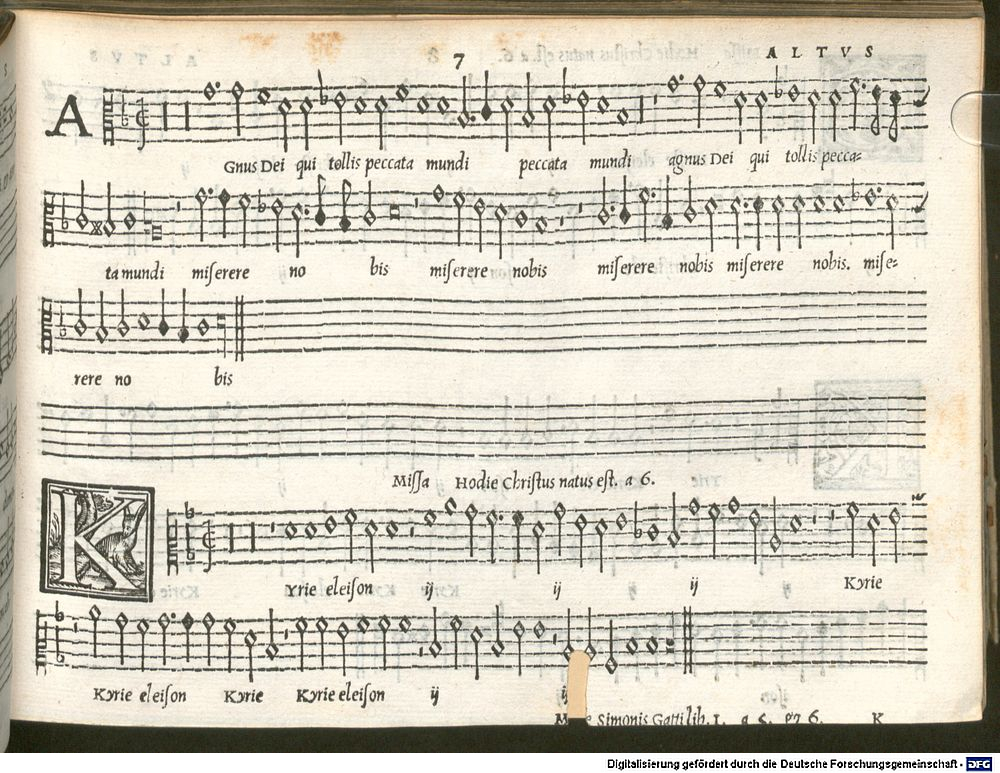 7 ALTVS
A GnusDei qui tollis peccata mundi peccata mundi agnus Dei qui tollis pecca=
ta mundi miserere no bis miserere nobis miserere nobis miserere nobis. mise=
rere no bis
Missa Hodie Christus natus est. a 6.
K Yrie eleison ij ij ij Kyrie
Kyrie eleison Kyrie Kyrie eleison ij ij
Simonis Gatti lib. 1. a 5. & 6. K
Digitalisierung gefördert durch die Deutsche Forschungsgemeinschaft - DFG